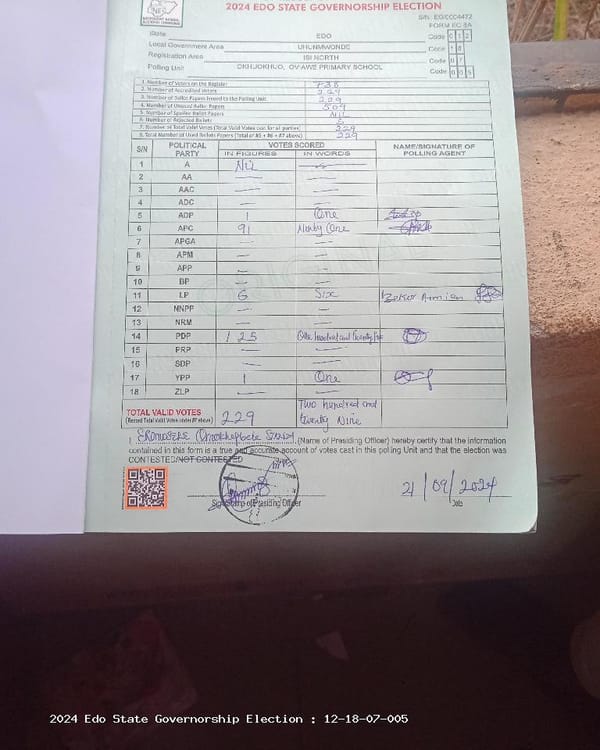 2024 EDO STATE GOVERNORSHIP ELECTION
S/N: EG/CCC4472
FORM EC 8A
State EDO Code 0 1 2
Local Government Area UHUNMWONDE Code 1 8
Registration Area ISI NORTH Code 0 7
Polling Unit OKHUOKHUO, OVAWE PRIMARY SCHOOL Code 0 0 5
1. Number of Voters on the Register 738
2. Number of Accredited Voters 229
3. Number of Ballot Papers Issued to the Polling Unit
4. Number of Unused Ballot Papers 509
5. Number of Spoiled Ballot Papers NIL
6. Number of Rejected Ballots 5
7. Number of Total Valid Votes (Total Valid Votes cast for all parties)
8. Total Number of Used Ballots Papers (Total of #5 + #6 + #7 above) 229
S/N POLITICAL PARTY VOTES SCORED NAME/SIGNATURE OF POLLING AGENT
IN FIGURES IN WORDS
1 A NIL
2 AA —
3 AAC —
4 ADC —
5 ADP 1 One
6 APC 91 Ninty One
7 APGA —
8 APM —
9 APP —
10 BP —
11 LP 6 Six
12 NNPP —
13 NRM —
14 PDP 125 One hundred and twenty five
15 PRP —
16 SDP —
17 YPP 1 One
18 ZLP —
TOTAL VALID VOTES 229 Two hundred and
(Record Total Valid Votes under #7 above) twenty Nine
I, (Name of Presiding Officer) hereby certify that the information
contained in this form is a true and accurate account of votes cast in this polling Unit and that the election was
CONTESTED/NOT CONTESTED
21/09/2024
Sign/Stamp of Presiding Officer
2024 Edo State Governorship Election : 12-18-07-005